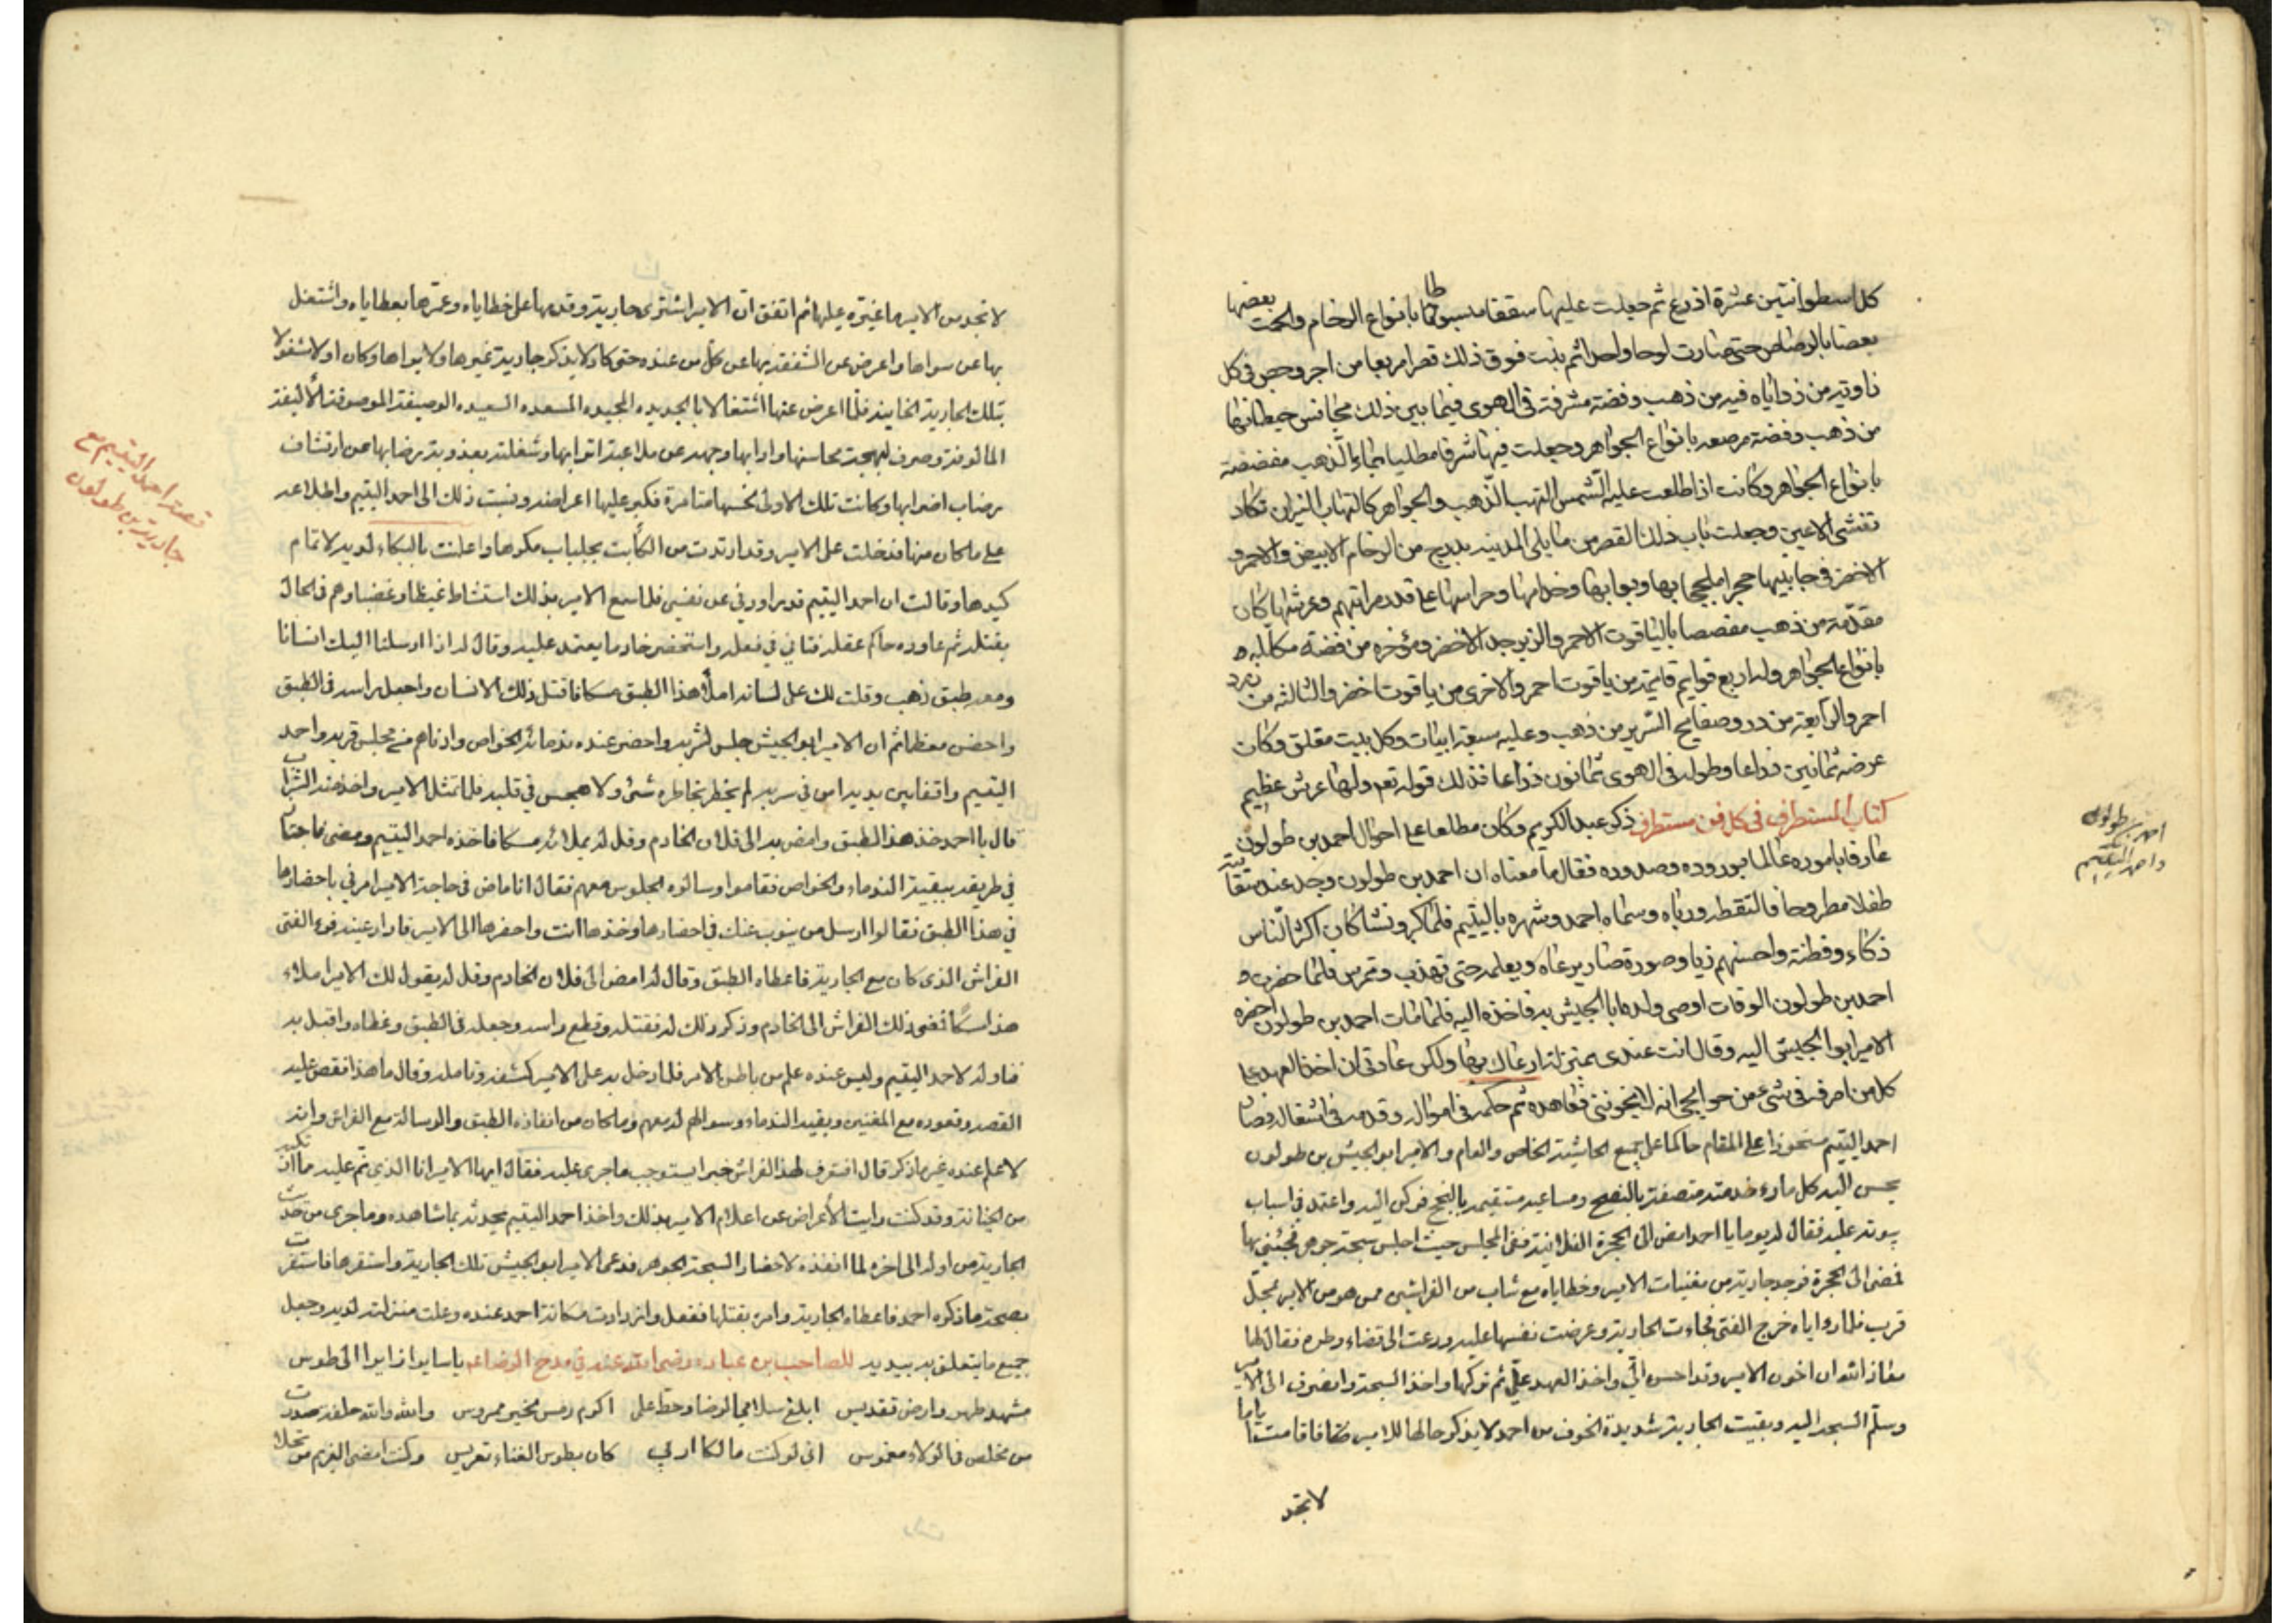 كل اسطوانتين عشرة اذرع ثم جعلت عليها سقفا بانواع الرخام والحمت بعضها
بعضا بالرصاص حتى صارت لوحا واحدا ثم بنت فوق ذلك قصرا مربعا من اجر وجص في كل
زاوية من زواياه قبة من ذهب وفضة مشرفة في الهوى فيما بين ذلك مجانس حيطانها
من ذهب وفضة مرصعه بانواع الجواهر وجعلت فيها شرفا مطليا بماء الذهب مفضضة
بانواع الجواهر وكانت اذا طلعت عليه الشمس التهب الذهب والجواهر كالتهاب النيران تكاد
تغشى الاعين وجعلت باب ذلك القصر من ما يلى المدينه بدرج من الرخام الابيض والاحمر و
الاخضر في جانبيها حجر لحجابها وبوابها وخدامها وحراسها على قدر مراتبهم وعرشها كان
مقدمة من ذهب مفصصا بالياقوت الاحمر والزبرجد الاخضر ومؤخره من فضة مكلله
بانواع الجواهر وله اربع قوايم قايمة من ياقوت احمر والاخرى من ياقوت اخضر والثالثه من زمرد
احمر والرابعة من در وصفايح السرير من ذهب وعليه سبعة ابيات وكل بيت مقلق وكان
عرضه ثمانين ذراعا وطوله في الهوى ثمانون ذراعا فذلك قوله تعه ولها عرش عظيم
كتاب المستطرف في كل فن مستطرف ذكر عبد الكريم وكان مطلعا على احوال احمد بن طولون
عارفا باموره عالما بوروده وصدوره فقال ما معناه ان احمد بن طولون وجد عند سقايته
طفلا مطروحا فالتقطه ورباه وسماه احمد وشهره باليتيم فلما كبر ونشا كان اكثر الناس
ذكاء وفطنة واحسنهم زيا وصورة فصار يرعاه ويعلمه حتى تهذب وتمرس فلما حضرت
احمد بن طولون الوفات اوصى ولده ابا الجيش به فاخذه اليه فلما مات احمد بن طولون احضره
الامير ابو الجيش اليه وقال انت عندى بمنزلة ارعاك بها ولكن عادتى ان اخذ العهد على
كل من اصرفه في شئ من حوايجى انه لا يخوننى فعاهده ثم حكمه في امواله وقدمه في اشغاله فصار
احمد اليتيم مستحوذا على المقام حاكما على جميع الحاشية الخاص والعام والامير ابو الجيش بن طولون
يحسن اليه كل ما راء خدمته متصفة بالنصح ومساعيه مستقيمه بالنجح فركن اليه واعتمد في اسباب
بيوته عليه فقال له يوما يا احمد امض الى الحجرة الفلانية ففى المجلس حيث اجلس سبحة جوهر فجئنى بها
فمضى الى الحجرة فوجد جارية من مغنيات الامير وحظاياه مع شاب من الفراشين ممن هو من الامير بمحل
قرب فلما راواه خرج الفتى فجاءت الجارية وعرضت نفسها عليه ودعته الى قضاء وطره فقال لها
معاذ الله ان اخون الامير وقد احسن الى واخذ العهد على ثم تركها واخذ السبحة وانصرف الى الامير
وسلم السبحه اليه وبقيت الجارية شديدة الخوف من احمد لا يذكر حالها للامير فاقامت اياما
لا تجد
احمد بن طولون
واحمد اليتيم
لا تجد من الامير ما غيره عليها ثم اتفق ان الامير اشترى جارية وقدمها على حظاياه وغمرها بعطاياه واشتغل
بها عن سواها واعرض عن الشغفة بها عن كل من عنده حتى كاد لا يذكر جارية غيرها ولا يراها وكان اولا مشغولا
بتلك الجارية الخاينه فلما اعرض عنها اشتغالا بالجديده المجيده المسعده السعيده الوصيفة الموصوفة الأليفة
المالوفة وصرف لبهجة محاسنها وادابها وجهه عن ملاعبة اترابها وشغلته بعذوبة رضابها عن ارتشاف
رضاب اضرابها وكانت تلك الاولى لحسنها متامرة فكبر عليها اعراضه ونسبت ذلك الى احمد اليتيم واطلاعه
على ما كان منها فدخلت على الامير وقد ارتدت من الكأبة بجلباب مكرها واعلنت بالبكاء لديه لاتمام
كيدها وقالت ان احمد اليتيم قد راودنى عن نفسى فلما سمع الامير بذلك استشاط غيظا وغضبا وهم في الحال
بقتله ثم عاوده حاكم عقله فتانى في فعله واستحضر خادما يعتمد عليه وقال له اذا ارسلنا اليك انسانا
ومعه طبق ذهب وقلت لك على لسانه املأ هذا الطبق مسكا فاقتل ذلك الانسان واجعل راسه في الطبق
واحضره مغطا ثم ان الامير ابو الجيش جلس لشربه واحضر عنده ندمائه الخواص وادناهم من مجلس قربه واحمد
اليتيم واقفا بين يديه امن في سربه لم يخطر بخاطره شئ ولا هجس في قلبه فلما تمثل الامير واخذ منه الشراب
قال يا احمد خذ هذا الطبق وامض به الى فلان الخادم وقل له يملائه مسكا فاخذه احمد اليتيم ومضى فاجتاز
في طريقه ببقية الندماء والخواص فقاموا وسالوه الجلوس معهم فقال انا ماض في حاجة الامير امرنى باحضارها
في هذا الطبق فقالوا ارسل من ينوب عنك في احضارها وخذها انت واحضرها الى الامير فادار عينه فرء الفتى
الفراش الذى كان مع الجارية فاعطاه الطبق وقال له امض الى فلان الخادم وقل له يقول لك الامير املاء
هذا مسكا فمضى ذلك الفراش الى الخادم وذكر ذلك له فقتله وقطع راسه وجعله في الطبق وغطاه واقبل به
فناوله لاحمد اليتيم وليس عنده علم من باطن الامر فلما دخل به على الامير كشفه وتامله وقال ما هذا فقص عليه
القصه وقعوده مع المغنين وبقية الندماء وسوالهم له معهم وما كان من انفاذه الطبق والرساله مع الفراش وانه
لا علم عنده غير ما ذكر قال افتعرف لهذا الفراش خبرا يستوجب ما جرى عليه فقال ايها الامير ان الذى تم عليه بما ارتكبه
من الخيانة وقد كنت رايت الأعراض عن اعلام الامير بذلك واخذ احمد اليتيم يحدثه بما شاهده وما جرى من حديث
الجارية من اوله الى اخره لما انفذه لاحضار السبحة الجوهر فدعى الامير ابو الجيش تلك الجارية واستقرها فاقرت
بصحة ما ذكره احمد فاعطاه الجارية وامره بقتلها ففعل وازدادت مكانة احمد عنده وعلت منزلته لديه وجعل
جميع ما يتعلق به بيديه للصاحب بن عباد رضى الله عنه في مدح الرضاء يا سايرا زايرا الى طوس
مشهد طهر وارض تقديس ابلغ سلامى الرضا وحط على اكرم رمس لخير مرموس والله والله حلفة صدرت
من مخلص في الولاء مغموس انى لو كنت مالكا اربى كان بطوس الغناء تعريس وكنت امضى العزيم مرتحلا
قصة احمد اليتيم مع
جارية بن طولون